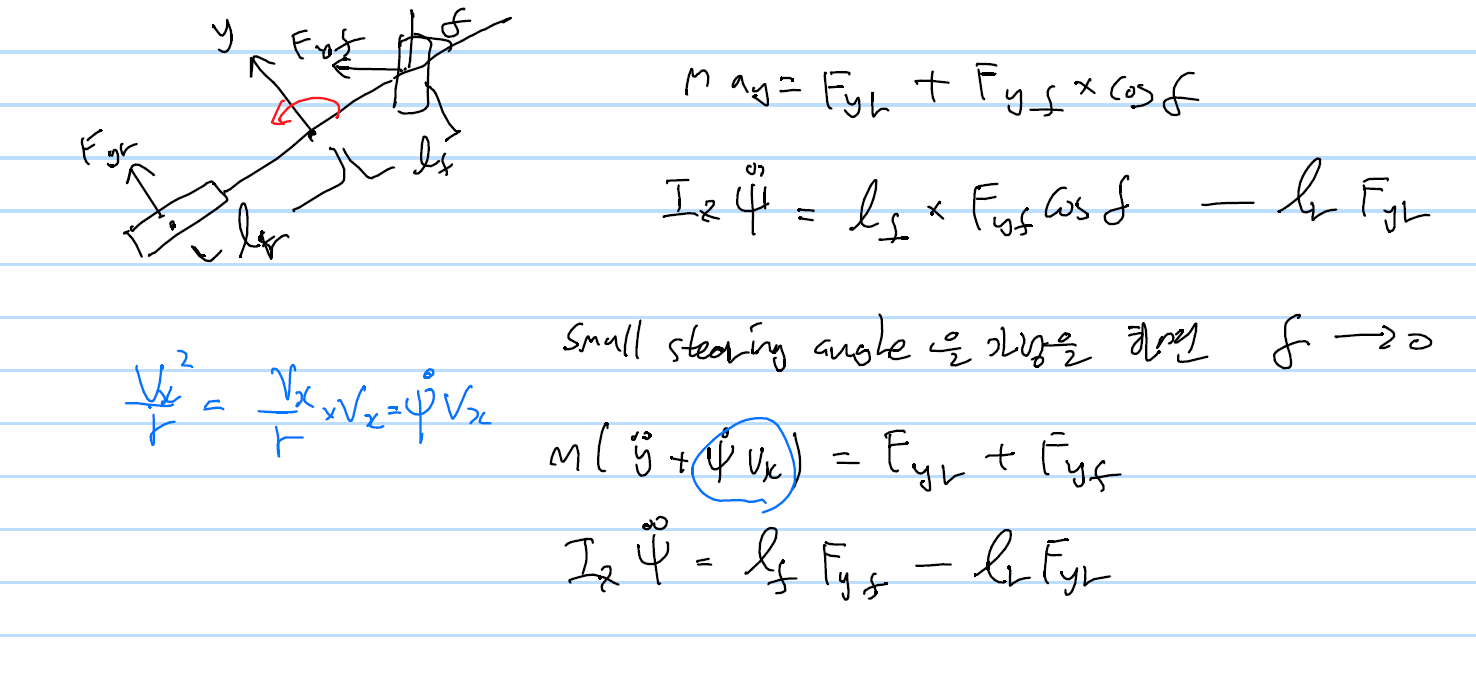 y
F_yf
δ
F_yr
l_f
l_r
m a_y = F_yr + F_yf × cos δ
I_z ψ̈ = l_f × F_yf cos δ - l_r F_yr
small steering angle을 가정을 하면 δ → 0
V_x²/r = V_x/r × V_x = ψ̇ V_x
m(ÿ + ψ̇ V_x) = F_yr + F_yf
I_z ψ̈ = l_f F_yf - l_r F_yr